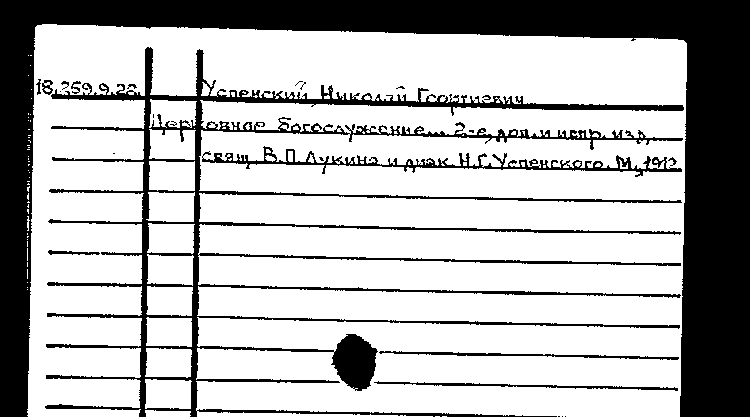 18.259.9.22. Успенский, Николай Георгиевич
Церковное богослужение... 2-е, доп. и испр. изд.
свящ. В.П. Лукина и диак. Н.Г. Успенского. М., 1912